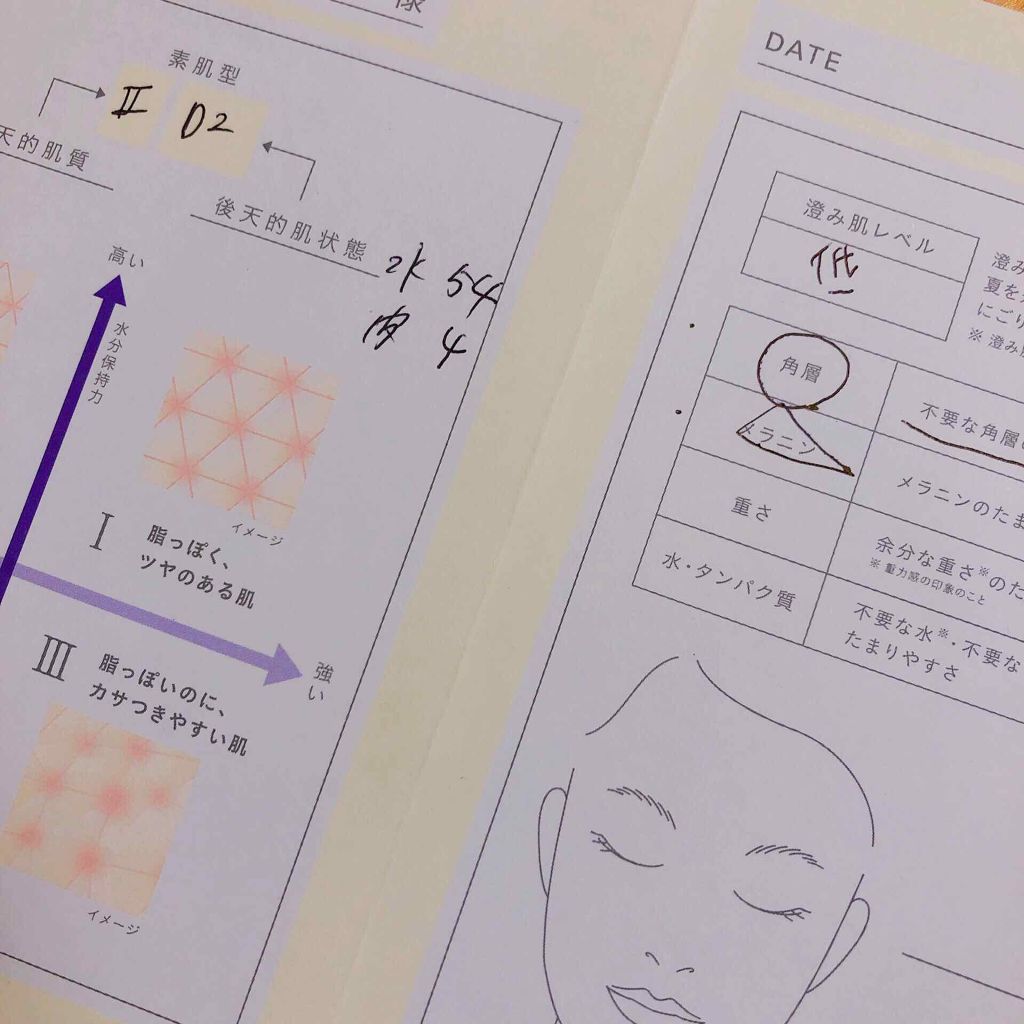 様
素肌型
II D2
天的肌質
後天的肌状態
水 54
皮 4
高い
水分保持力
イメージ
I 脂っぽく、
ツヤのある肌
強い
III 脂っぽいのに、
カサつきやすい肌
イメージ
DATE
澄み肌レベル
低
澄み
夏を
にごり
※ 澄み
角層
不要な角層
メラニン
メラニンのたま
重さ
余分な重さ※のた
※ 重力感の印象のこと
水・タンパク質
不要な水※・不要な
たまりやすさ